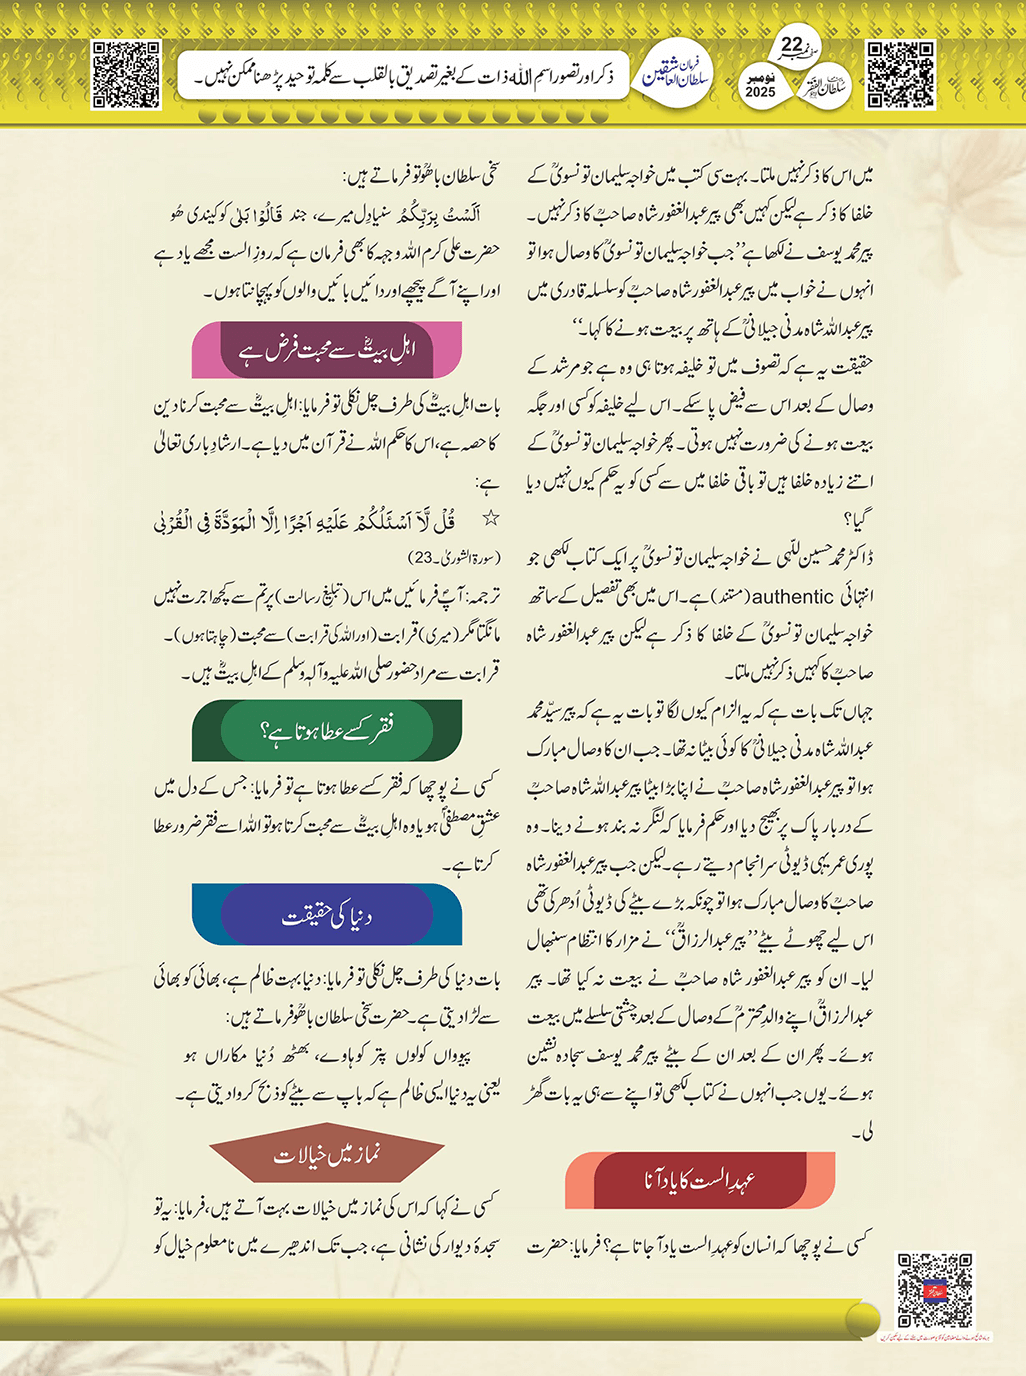 ذکر اور تصور اسم اللہ ذات کے بغیر تصدیق بالقلب سے کلمہ توحید پڑھنا ممکن نہیں۔
فرمان
سلطان العاشقین
صفحہ نمبر 22
نومبر
2025
سلطان الفقر
میں اس کا ذکر نہیں ملتا۔ بہت سی کتب میں خواجہ سلیمان تونسویؒ کے
خلفا کا ذکر ہے لیکن کہیں بھی پیر عبدالغفور شاہ صاحبؒ کا ذکر نہیں۔
پیر محمد یوسف نے لکھا ہے ”جب خواجہ سلیمان تونسویؒ کا وصال ہوا تو
انہوں نے خواب میں پیر عبدالغفور شاہ صاحبؒ کو سلسلہ قادری میں
پیر عبداللہ شاہ مدنی جیلانیؒ کے ہاتھ پر بیعت ہونے کا کہا۔“
حقیقت یہ ہے کہ تصوف میں تو خلیفہ ہوتا ہی وہ ہے جو مرشد کے
وصال کے بعد اس سے فیض پا سکے۔ اس لیے خلیفہ کو کسی اور جگہ
بیعت ہونے کی ضرورت نہیں ہوتی۔ پھر خواجہ سلیمان تونسویؒ کے
اتنے زیادہ خلفا ہیں تو باقی خلفا میں سے کسی کو یہ حکم کیوں نہیں دیا
گیا؟
ڈاکٹر محمد حسین للٰہی نے خواجہ سلیمان تونسویؒ پر ایک کتاب لکھی جو
انتہائی authentic (مستند) ہے۔ اس میں بھی تفصیل کے ساتھ
خواجہ سلیمان تونسویؒ کے خلفا کا ذکر ہے لیکن پیر عبدالغفور شاہ
صاحبؒ کا کہیں ذکر نہیں ملتا۔
جہاں تک بات ہے کہ یہ الزام کیوں لگا تو بات یہ ہے کہ پیر سیّد محمد
عبداللہ شاہ مدنی جیلانیؒ کا کوئی بیٹا نہ تھا۔ جب ان کا وصال مبارک
ہوا تو پیر عبدالغفور شاہ صاحبؒ نے اپنا بڑا بیٹا پیر عبداللہ شاہ صاحبؒ
کے دربار پاک پر بھیج دیا اور حکم فرمایا کہ لنگر نہ بند ہونے دینا۔ وہ
پوری عمر یہی ڈیوٹی سرانجام دیتے رہے۔ لیکن جب پیر عبدالغفور شاہ
صاحبؒ کا وصال مبارک ہوا تو چونکہ بڑے بیٹے کی ڈیوٹی اُدھر کی تھی
اس لیے چھوٹے بیٹے ”پیر عبدالرزاقؒ“ نے مزار کا انتظام سنبھال
لیا۔ ان کو پیر عبدالغفور شاہ صاحبؒ نے بیعت نہ کیا تھا۔ پیر
عبدالرزاقؒ اپنے والد محترمؒ کے وصال کے بعد چشتی سلسلے میں بیعت
ہوئے۔ پھر ان کے بعد ان کے بیٹے پیر محمد یوسف سجادہ نشین
ہوئے۔ یوں جب انہوں نے کتاب لکھی تو اپنے سے ہی یہ بات گھڑ
لی۔
عہدِ الست کا یاد آنا
کسی نے پوچھا کہ انسان کو عہدِ الست یاد آ جاتا ہے؟ فرمایا: حضرت
سخی سلطان باھوؒ تو فرماتے ہیں:
اَلَسْتُ بِرَبِّکُمْ سنیا دِل میرے، جند قَالُوْا بَلٰی کوکیندی ھُو
حضرت علی کرم اللہ وجہہ کا بھی فرمان ہے کہ روزِ الست مجھے یاد ہے
اور اپنے آگے پیچھے اور دائیں بائیں والوں کو پہچانتا ہوں۔
اہلِ بیتؓ سے محبت فرض ہے
بات اہلِ بیتؓ کی طرف چل نکلی تو فرمایا: اہلِ بیتؓ سے محبت کرنا دین
کا حصہ ہے، اس کا حکم اللہ نے قرآن میں دیا ہے۔ ارشادِ باری تعالیٰ
ہے:
☆ قُلْ لَّآ اَسْئَلُکُمْ عَلَیْہِ اَجْرًا اِلَّا الْمَوَدَّۃَ فِی الْقُرْبٰی
(سورۃ الشوریٰ۔23)
ترجمہ: آپؐ فرمائیں میں اس (تبلیغِ رسالت) پر تم سے کچھ اجرت نہیں
مانگتا مگر (میری) قرابت (اور اللہ کی قرابت) سے محبت (چاہتا ہوں)۔
قرابت سے مراد حضور صلی اللہ علیہ وآلہٖ وسلم کے اہلِ بیتؓ ہیں۔
فقر کسے عطا ہوتا ہے؟
کسی نے پوچھا کہ فقر کسے عطا ہوتا ہے تو فرمایا: جس کے دل میں
عشقِ مصطفیؐ ہو یا وہ اہلِ بیتؓ سے محبت کرتا ہو تو اللہ اسے فقر ضرور عطا
کرتا ہے۔
دنیا کی حقیقت
بات دنیا کی طرف چل نکلی تو فرمایا: دنیا بہت ظالم ہے، بھائی کو بھائی
سے لڑا دیتی ہے۔ حضرت سخی سلطان باھوؒ فرماتے ہیں:
پیوواں کولوں پتر کوہاوے، بھٹھ دُنیا مکاراں ہو
یعنی یہ دنیا ایسی ظالم ہے کہ باپ سے بیٹے کو ذبح کروا دیتی ہے۔
نماز میں خیالات
کسی نے کہا کہ اس کی نماز میں خیالات بہت آتے ہیں، فرمایا: یہ تو
سجدۂ دیوار کی نشانی ہے، جب تک اندھیرے میں نامعلوم خیال کو